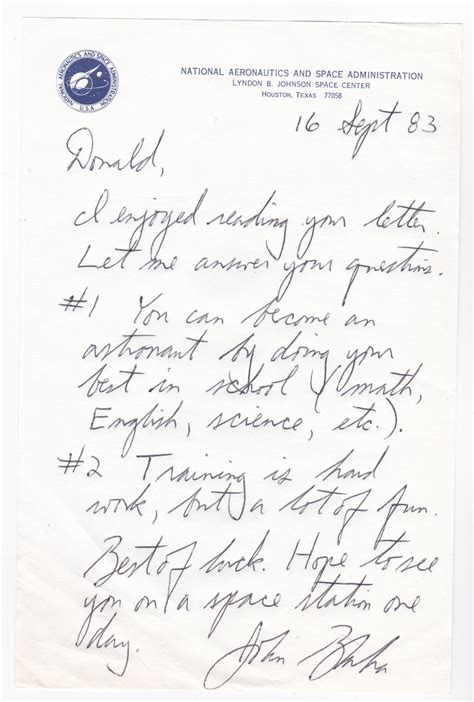 NATIONAL AERONAUTICS AND SPACE ADMINISTRATION
U.S.A.
NATIONAL AERONAUTICS AND SPACE ADMINISTRATION
LYNDON B. JOHNSON SPACE CENTER
HOUSTON, TEXAS 77058
16 Sept 83
Donald,
I enjoyed reading your letter.
Let me answer your questions.
#1 You can become an
astronaut by doing your
best in school (math,
English, science, etc.).
#2 Training is hard
work, but a lot of fun.
Best of luck. Hope to see
you on a space station one
day.
John Blaha